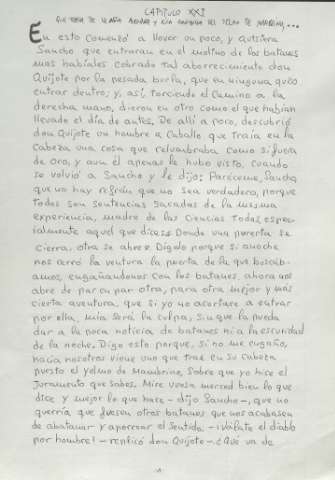 CAPITULO XXI
QUE TRATA DE LA ALTA AVENTURA Y RICA GANANCIA DEL YELMO DE MAMBRINO, ...
En esto comenzó a llover un poco, y quisiera
Sancho que entraran en el molino de los batanes
mas habíales cobrado tal aborrecimiento don
Quijote por la pesada burla, que en ninguna quiso
entrar dentro; y, así, torciendo el camino a la
derecha mano, dieron en otro como el que habían
llevado el día de antes. De allí a poco, descubrió
don Quijote un hombre a caballo que traía en la
cabeza una cosa que relumbraba como si fuera
de oro, y aun él apenas le hubo visto, cuando
se volvió a Sancho y le dijo: Paréceme, Sancho,
que no hay refrán que no sea verdadero, porque
todos son sentencias sacadas de la mesma
experiencia, madre de las ciencias todas, espec-
ialmente aquel que dice: Donde una puerta se
cierra, otra se abre. Dígolo porque si anoche
nos cerró la ventura la puerta de la que buscáb-
amos, engañándonos con los batanes, ahora nos
abre de par en par otra, para otra mejor y más
cierta aventura, que si yo no acertare a entrar
por ella, mía será la culpa, sin que la pueda
dar a la poca noticia de batanes ni a la escuridad
de la noche. Digo esto porque, si no me engaño,
hacia nosotros viene uno que trae en su cabeza
puesto el yelmo de Mambrino, sobre que yo hice el
juramento que sabes. Mire vuesa merced bien lo que
dice y mejor lo que hace - dijo Sancho -, que no
querría que fuesen otros batanes que nos acabasen
de abatanar y aporrear el sentido. - ¡Válate el diablo
por hombre! - replicó don Quijote - ¿Qué va de